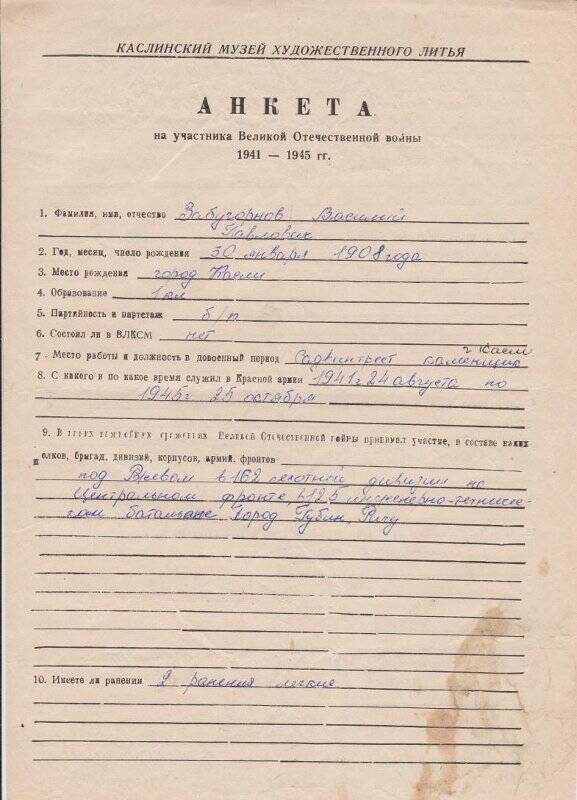 КАСЛИНСКИЙ МУЗЕЙ ХУДОЖЕСТВЕННОГО ЛИТЬЯ
АНКЕТА
на участника Великой Отечественной войны
1941 — 1945 гг.
1. Фамилия, имя, отчество Забугорнов Василий
Павлович
2. Год, месяц, число рождения 30 января 1908 года
3. Место рождения город Касли
4. Образование 1 кл
5. Партийность и партстаж б/п
6. Состоял ли в ВЛКСМ нет
г Касли
7. Место работы и должность в довоенный период каменщик
8. С какого и по какое время служил в Красной армии 1941г 24 августа по
1945г 25 октября
9. В каких сражениях Великой Отечественной войны принимал участие, в составе каких
полков, бригад, дивизий, корпусов, армий, фронтов
под в 162 пехотной дивизии на
Центральном фронте, в 125 инженерно-техниче-
ском батальоне город Губин, Ригу
10. Имеете ли ранения 2 ранения легкие